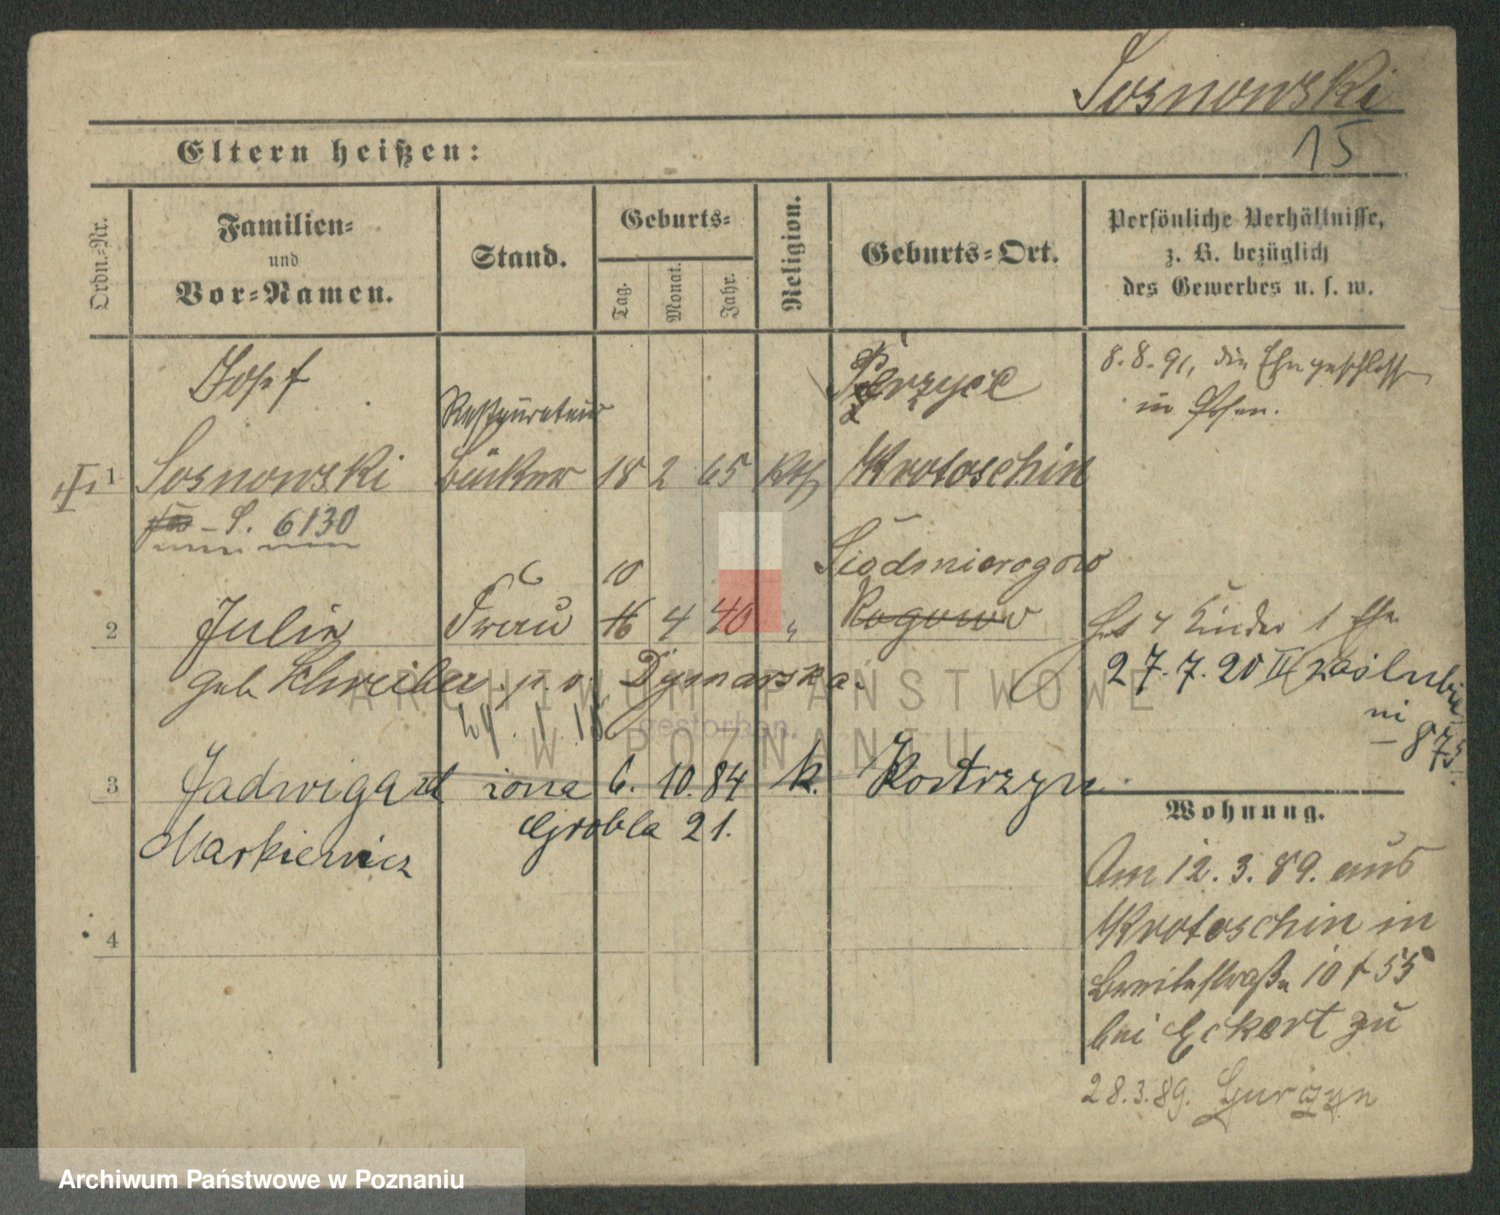 Sosnowski
15
Eltern heißen:
Ordn.-Nr.
Familien-
und
Vor-Namen.
Stand.
Geburts-
Tag.
Monat.
Jahr.
Religion.
Geburts-Ort.
Persönliche Verhältnisse,
z. B. bezüglich
des Gewerbes u. s. w.
Josef
Restaurateur
8. 8. 91, die Ehe geschlossen
in Posen.
1 Sosnowski Bäcker 18 2 65 Kth Krotoschin
S. 6130
10 Siedmierogowo
2 Julie Frau 16 4 40 " Rogowo
Hat 4 Kinder 1 Ehe
geb Schreiber p. v. Dymarska.
27. 7. 20 II
24. 1. 18 gestorben.
875
3 Jadwiga żona 6. 10. 84 k. Kostrzyn
Markiewicz
Grobla 21.
4
Wohnung.
Am 12. 3. 89. aus
Krotoschin in
Breitestraße 10 + 55
bei Eckert zu
28. 3. 89.
ARCHIWUM PAŃSTWOWE
W POZNANIU
Archiwum Państwowe w Poznaniu